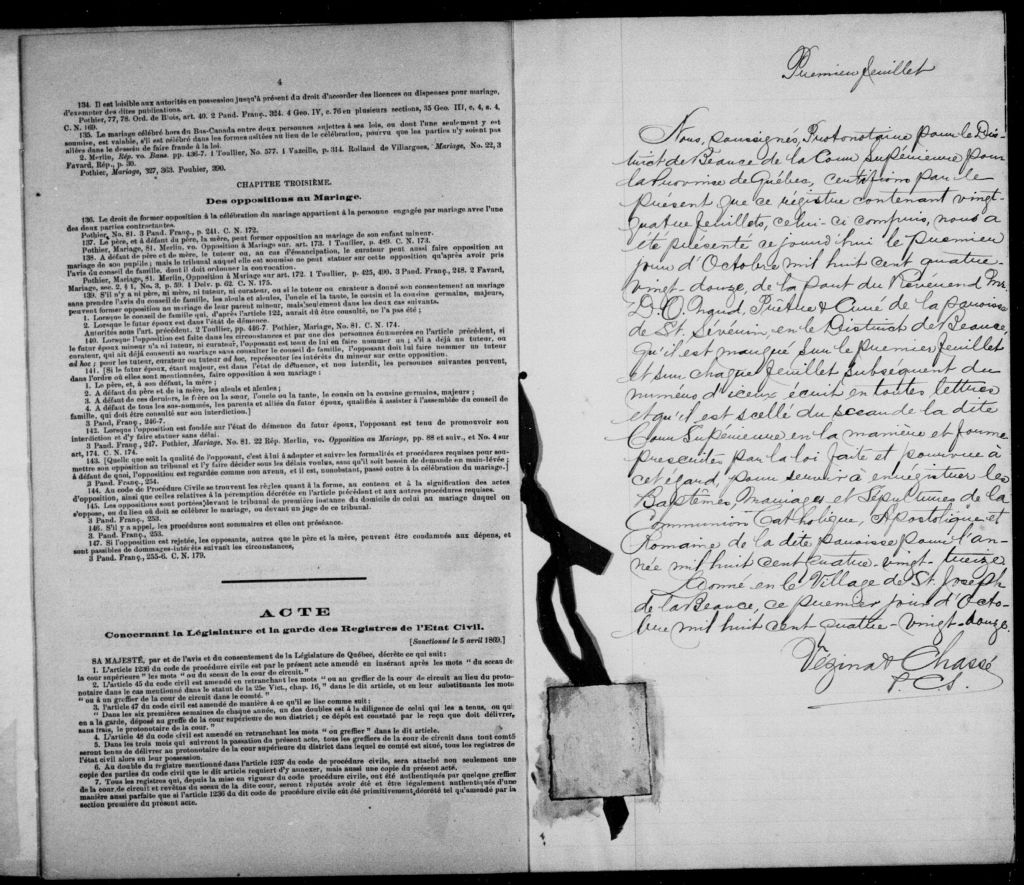 4
134. Il est loisible aux autorités en possession jusqu'à présent du droit d'accorder des licences ou dispenses pour mariage,
d'exempter des dites publications.
Pothier, 77, 78. Ord. de Blois, art. 40. 2 Pand. Franç., 324. 4 Geo. IV, c. 76 en plusieurs sections, 35 Geo. III, c, 4, s. 4,
C. N. 169.
135. Le mariage célébré hors du Bas-Canada entre deux personnes sujettes à ses lois, ou dont l'une seulement y est
soumise, est valable, s'il est célébré dans les formes usitées au lieu de la célébration, pourvu que les parties n'y soient pas
allées dans le dessein de faire fraude à la loi.
2. Merlin, Rép. vo. Bans. pp. 436-7. 1 Toullier, No. 577. 1 Vazeille, p. 314. Rolland de Villargues, Mariage, No. 22, 3
Favard, Rép., p. 30.
Pothier, Mariage, 327, 363. Pouhier, 390.
CHAPITRE TROISIÈME.
Des oppositions au Mariage.
136. Le droit de former opposition à la célébration du mariage appartient à la personne engagée par mariage avec l'une
des deux parties contractantes.
Pothier, No. 81. 3 Pand. Franç., p. 241. C. N. 172.
137. Le père, et à défaut du père, la mère, peut former opposition au mariage de son enfant mineur.
Pothier, Mariage, 81. Merlin, vo. Opposition à Mariage sur. art. 173. 1 Toullier, p. 489. C. N. 173.
138. A défaut de père et de mère, le tuteur ou, au cas d'émancipation, le curateur peut aussi faire opposition au
mariage de son pupille; mais le tribunal auquel elle est soumise ne peut statuer sur cette opposition qu'après avoir pris
l'avis du conseil de famille, dont il doit ordonner la convocation.
Pothier, Mariage, 81. Merlin, Opposition à Mariage sur art. 172. 1 Toullier, p. 425, 490. 3 Pand. Franç., 248. 2 Favard,
Mariage, sec. 2, § 1, No. 3, p. 59. 1 Delv. p. 62. C. N. 175.
139. S'il n'y a ni père, ni mère, ni tuteur, ni curateur, ou si le tuteur ou curateur a donné son consentement au mariage
sans prendre l'avis du conseil de famille, les aïeuls et aïeules, l'oncle et la tante, le cousin et la cousine germains, majeurs,
peuvent former opposition au mariage de leur parent mineur, mais seulement dans les deux cas suivants.
1. Lorsque le conseil de famille qui, d'après l'article 122, aurait dû être consulté, ne l'a pas été;
2. Lorsque le futur époux est dans l'état de démence.
Autorités sous l'art. précédent. 2 Toullier, pp. 446-7. Pothier, Mariage, No. 81. C. N. 174.
140. Lorsque l'opposition est faite dans les circonstances et par une des personnes énumérées en l'article précédent, si
le futur époux mineur n'a ni tuteur, ni curateur, l'opposant est tenu de lui en faire nommer un; s'il a déjà un tuteur, ou
curateur, qui ait déjà consenti au mariage sans consulter le conseil de famille, l'opposant doit lui faire nommer un tuteur
ad hoc; pour les tuteur, curateur ou tuteur ad hoc, représenter les intérêts du mineur sur cette opposition.
141. [Si le futur époux, étant majeur, est dans l'état de démence, et non interdit, les personnes suivantes peuvent,
dans l'ordre où elles sont mentionnées, faire opposition à son mariage:
1. Le père, et, à son défaut, la mère;
2. A défaut du père et de la mère, les aïeuls et aïeules;
3. A défaut de ces derniers, le frère ou la sœur, l'oncle ou la tante, le cousin ou la cousine germains, majeurs;
4. A défaut de tous les sus-nommés, les parents et alliés du futur époux, qualifiés à assister à l'assemblée du conseil de
famille, qui doit être consulté sur son interdiction.]
3 Pand. Franç., 246-7.
142. Lorsque l'opposition est fondée sur l'état de démence du futur époux, l'opposant est tenu de promouvoir son
interdiction et d'y faire statuer sans délai.
3 Pand. Franç., 247. Pothier, Mariage. No. 81. 22 Rép. Merlin, vo. Opposition au Mariage, pp. 88 et suiv., et No. 4 sur
art, 174. C. N. 174.
143. [Quelle que soit la qualité de l'opposant, c'est à lui à adopter et suivre les formalités et procédures requises pour sou-
mettre son opposition au tribunal et l'y faire décider sous les délais voulus, sans qu'il soit besoin de demande en main-levée;
à défaut de quoi, l'opposition est regardée comme non avenu, et il est, nonobstant, passé outre à la célébration du mariage.]
3 Pand. Franç., 254.
144. Au code de Procédure Civile se trouvent les règles quant à la forme, au contenu et à la signification des actes
d'opposition, ainsi que celles relatives à la péremption décrétée en l'article précédent et aux autres procédures requises.
145. Les oppositions sont portées devant le tribunal de première instance du domicile de celui au mariage duquel on
s'oppose, ou du lieu où doit se célébrer le mariage, ou devant un juge de ce tribunal.
3 Pand. Franç., 253.
146. S'il y a appel, les procédures sont sommaires et elles ont préséance.
3. Pand. Franç., 253.
147. Si l'opposition est rejetée, les opposants, autres que le père et la mère, peuvent être condamnés aux dépens, et
sont passibles de dommages-intérêts suivant les circonstances,
3 Pand. Franç., 255-6. C. N. 179.
ACTE
Concernant la Législature et la garde des Registres de l'Etat Civil.
[Sanctionné le 5 avril 1869.]
SA MAJESTÉ, par et de l'avis et du consentement de la Législature de Québec, décrète ce qui suit:
1. L'article 1236 du code de procédure civile est par le présent acte amendé en insérant après les mots "du sceau de
la cour supérieure" les mots "ou du sceau de la cour de circuit."
2. L'article 45 du code civil est amendé en retranchant les mots "ou au greffier de la cour de circuit au lieu du proto-
notaire dans le cas mentionné dans le statut de la 25e Vict., chap. 16," dans le dit article, et en leur substituants les mots
"ou à un greffier de la cour de circuit dans le comté."
3. Article 47 du code civil est amendé de manière à ce qu'il se lise comme suit:
"Dans les six premières semaines de chaque année, un des doubles est à la diligence de celui qui les a tenus, ou qui
en a la garde, déposé au greffe de la cour supérieure de son district; ce dépôt est constaté par le reçu que doit délivrer,
sans frais, le protonotaire de la cour."
4. L'article 48 du code civil est amendé en retranchant les mots "ou greffier" dans le dit article.
5. Dans les trois mois qui suivront la passation du présent acte, tous les greffiers de la cour de circuit dans tout comté
seront tenus de délivrer au protonotaire de la cour supérieure du district dans lequel ce comté est situé, tous les registres de
l'état civil alors en leur possession.
6. Au double du régistre mentionné dans l'article 1237 du code de procédure civile, sera attaché non seulement une
copie des parties du code civil que le dit article requiert d'y annexer, mais aussi une copie du présent acte.
7. Tous les registres qui, depuis la mise en vigueur du code procédure civile, ont été authentiqués par quelque greffier
de la cour de circuit et revêtus du sceau de la dite cour, seront réputés avoir été et être légalement authentiqués d'une
manière aussi parfaite que si l'article 1236 du dit code de procédure civile eût été primitivement décrété tel qu'amendé par la
section première du présent acte.
Premier feuillet
Nous, soussignés, Protonotaire pour le Dis-
trict de Beauce de la Cour Supérieure pour
la Province de Québec, certifions par le
présent que ce régistre contenant vingt-
quatre feuillets, celui-ci compris, nous a
été présenté ce jourd'hui le premier
jour d'Octobre mil huit cent quatre-
vingt-douze, de la part du Révérend Mr.
D. O. Naud, Prêtre & Curé de la paroisse
de St. Séverin, en le District de Beauce,
qu'il est marqué sur le premier feuillet
et sur chaque feuillet subséquent du
numéro d'iceux écrit en toutes lettres
et qu'il est scellé du sceau de la dite
Cour Supérieure en la manière et forme
prescrites par la loi faite et pourvue à
cet égard, pour servir à enrégistrer les
Baptêmes, Mariages et Sépultures de la
Communion Catholique, Apostolique et
Romaine de la dite paroisse pour l'an-
née mil huit cent quatre-vingt-treize
Donné en le Village de St. Joseph
de la Beauce, ce premier jour d'Octo-
bre mil huit cent quatre-vingt-douze.
Vézina & Chassé
P. C. S.